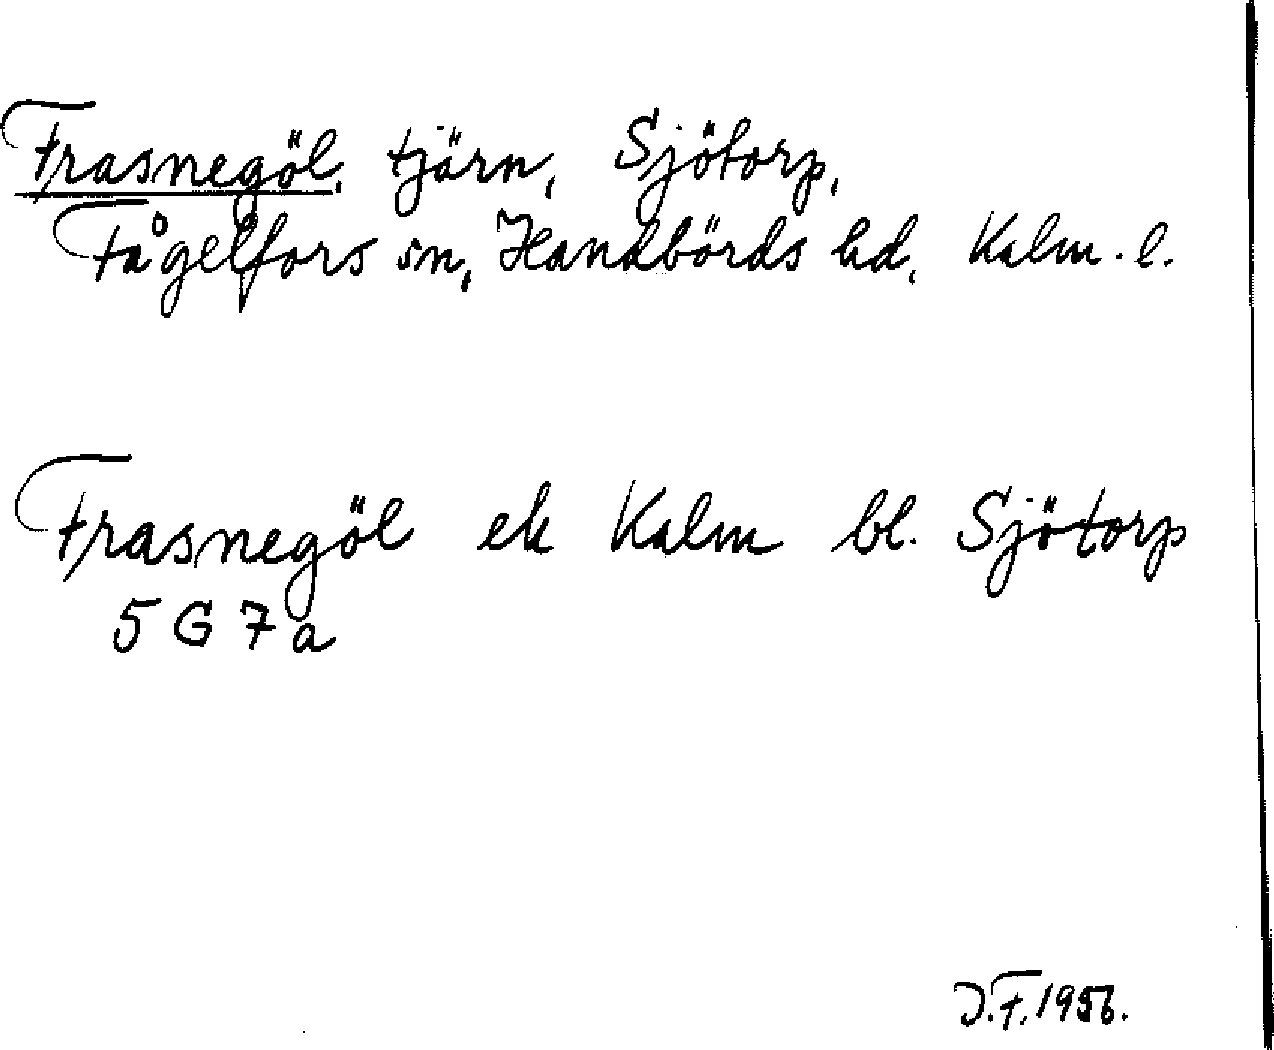 Frasnegöl, tjärn, Sjötorp,
Fågelfors sn, Handbörds hd, Kalm. l.
Frasnegöl ek Kalm bl. Sjötorp
5 G 7 a
J.F. 1956.